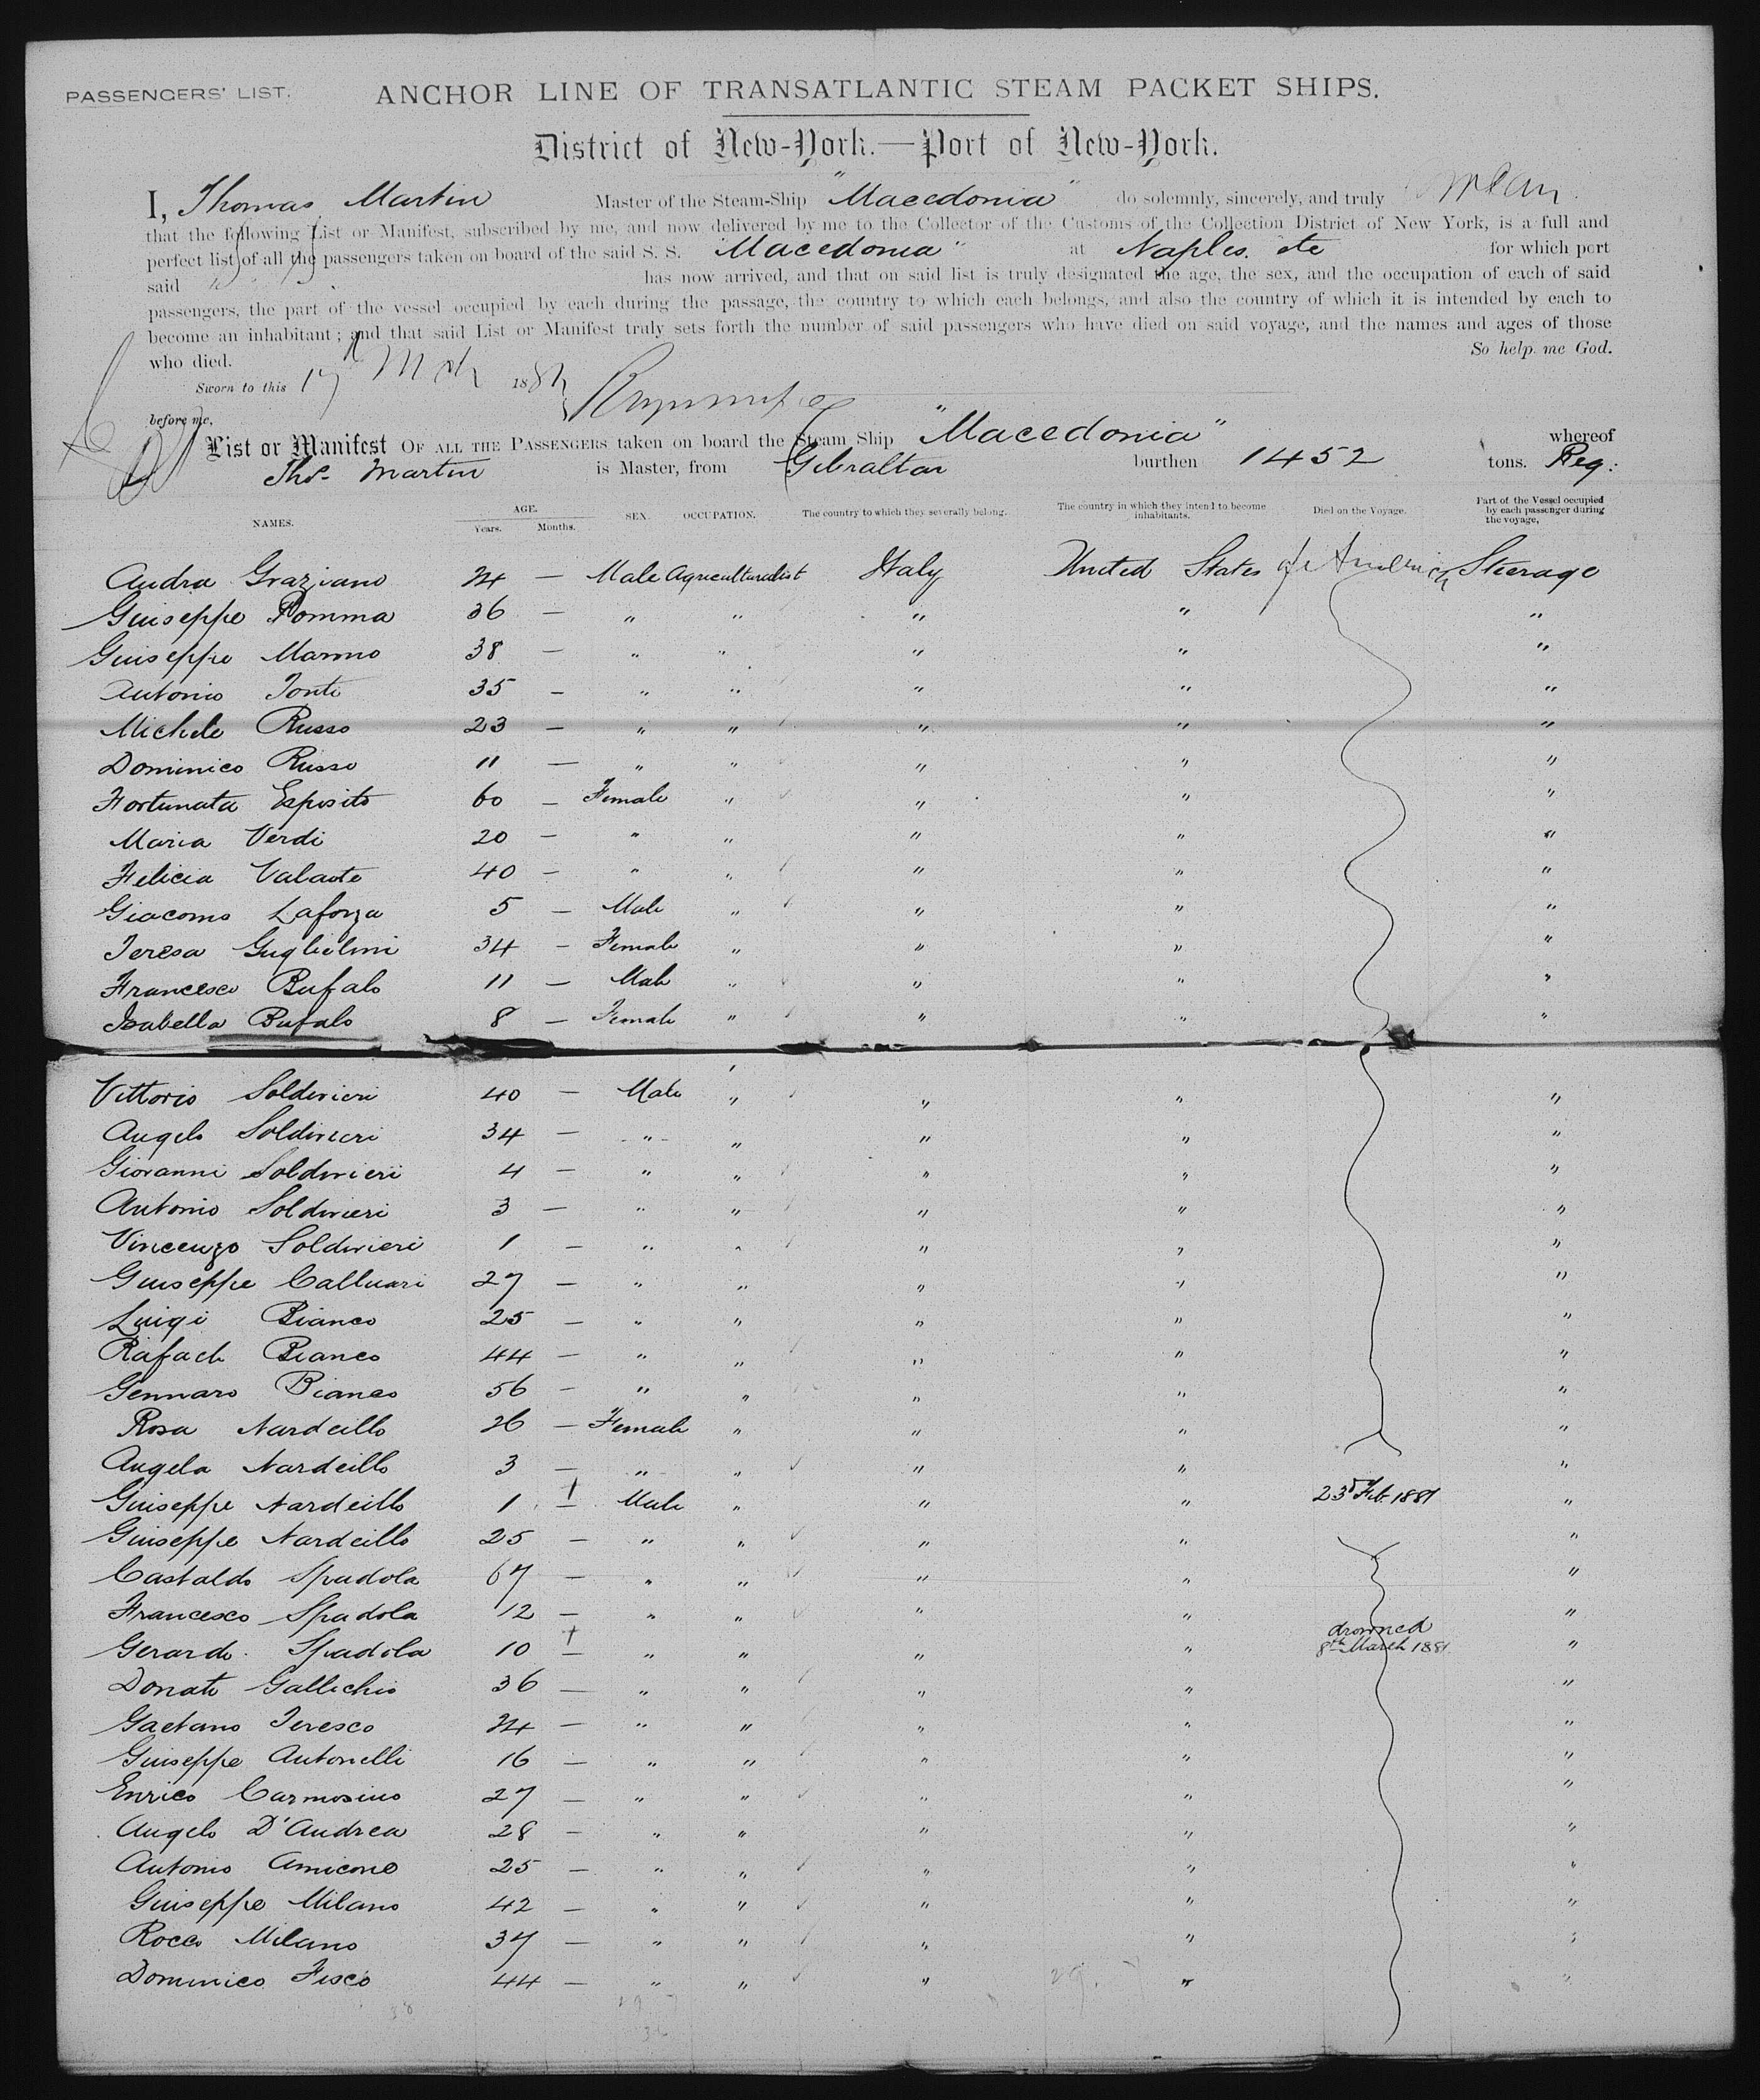 PASSENGERS' LIST.
ANCHOR LINE OF TRANSATLANTIC STEAM PACKET SHIPS.
District of New-York.—Port of New-York.
I, Thomas Martin Master of the Steam-Ship "Macedonia" do solemnly, sincerely, and truly swear
that the following List or Manifest, subscribed by me, and now delivered by me to the Collector of the Customs of the Collection District of New York, is a full and
perfect list of all the passengers taken on board of the said S. S. "Macedonia" at Naples. etc for which port
said has now arrived, and that on said list is truly designated the age, the sex, and the occupation of each of said
passengers, the part of the vessel occupied by each during the passage, the country to which each belongs, and also the country of which it is intended by each to
become an inhabitant; and that said List or Manifest truly sets forth the number of said passengers who have died on said voyage, and the names and ages of those
who died. So help me God.
Sworn to this 17 Mch 1881
before me,
List or Manifest OF ALL THE PASSENGERS taken on board the Steam Ship "Macedonia" whereof
Thos. Martin is Master, from Gibraltar burthen 1452 tons. Reg:
NAMES. AGE. Years. Months. SEX. OCCUPATION. The country to which they severally belong. The country in which they intend to become inhabitants. Died on the Voyage. Part of the Vessel occupied by each passenger during the voyage,
Andra Graziano 24 — Male Agriculturalist Italy United States of America Steerage
Giuseppe Pomma 36 — " " " " "
Giuseppe Marino 38 — " " " " "
Antonio Tonti 35 — " " " " "
Michele Russo 23 — " " " " "
Dominico Russo 11 — " " " " "
Fortunata Esposito 60 — Female " " " "
Maria Verdi 20 — " " " " "
Felicia 40 — " " " " "
Giacomo Laforza 5 — Male " " " "
Teresa Guglielmi 34 — Female " " " "
Francesco Bufalo 11 — Male " " " "
Isabella Bufalo 8 — Female " " " "
Vittorio Soldivieri 40 — Male " " " "
Angelo Soldivieri 34 — " " " " "
Giovanni Soldivieri 4 — " " " " "
Antonio Soldivieri 3 — " " " " "
Vincenzo Soldivieri 1 — " " " " "
Giuseppe Calluari 27 — " " " " "
Luigi Bianco 25 — " " " " "
Rafaele Bianco 44 — " " " " "
Gennaro Bianco 56 — " " " " "
Rosa Nardeillo 26 — Female " " " "
Angela Nardeillo 3 — " " " " "
Giuseppe Nardeillo 1 — † Male " " " 23d Feb. 1881 "
Giuseppe Nardeillo 25 — " " " " "
Castaldo Spadola 67 — " " " " "
Francesco Spadola 12 — " " " " "
Gerardo Spadola 10 — † " " " " drowned 8th March 1881 "
Donato Gallichio 36 — " " " " "
Gaetano Teresco 24 — " " " " "
Giuseppe Antonelli 16 — " " " " "
Enrico Carmosino 27 — " " " " "
Angelo D'Andrea 28 — " " " " "
Antonio Amicone 25 — " " " " "
Giuseppe Milano 42 — " " " " "
Rocco Milano 37 — " " " " "
Dominico Fisco 44 — " " " " "